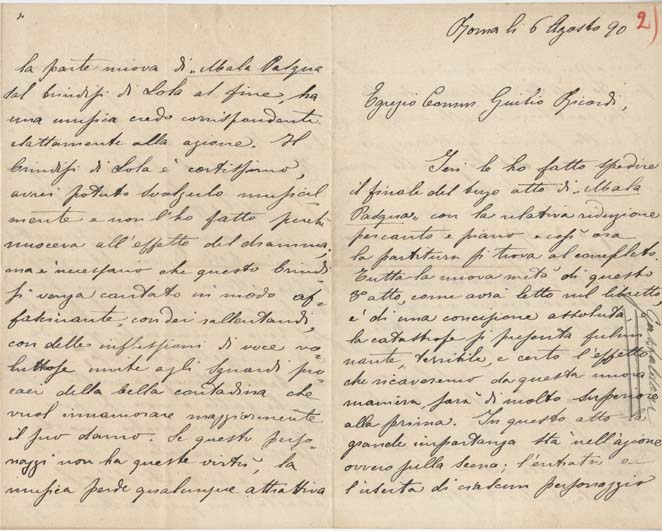 Roma li 6 Agosto 90
2)
Egregio Comm Giulio Ricordi,
Ieri le ho fatto spedire
il finale del terzo atto di "Mala
Pasqua" con la relativa riduzione
per canto e piano e così ora
la partitura si trova al completo.
Tutta la nuova metà di questo
3º atto, come avrà letto nel libretto
è di una concisione assoluta
la catastrofe si presenta fulmi
nante, terribile, e certo l'effetto
che ricaveremo da questa nuova
maniera sarà di molto superiore
alla prima. In questo atto la
grande importanza sta nell'azione
ovvero sulla scena; l'entrata e
l'uscita di ciascun personaggio
Gastaldon
la parte nuova di "Mala Pasqua
dal brindisi di Lola al fine, ha
una musica credo corrispondente
esattamente alla azione. Il
brindisi di Lola è cortissimo,
avrei potuto svolgerlo musical
mente e non l'ho fatto perché
nuoceva all'effetto del dramma,
ma è necessario che questo brindisi
si venga cantato in modo af-
fascinante, con dei rallentandi,
con delle inflessioni di voce vo-
luttose unite agli sguardi pro-
caci della bella contadina che
vuol innamorare maggiormente
il suo damo. Se questo perso-
naggi non ha queste virtù, la
musica perde qualunque attrattiva